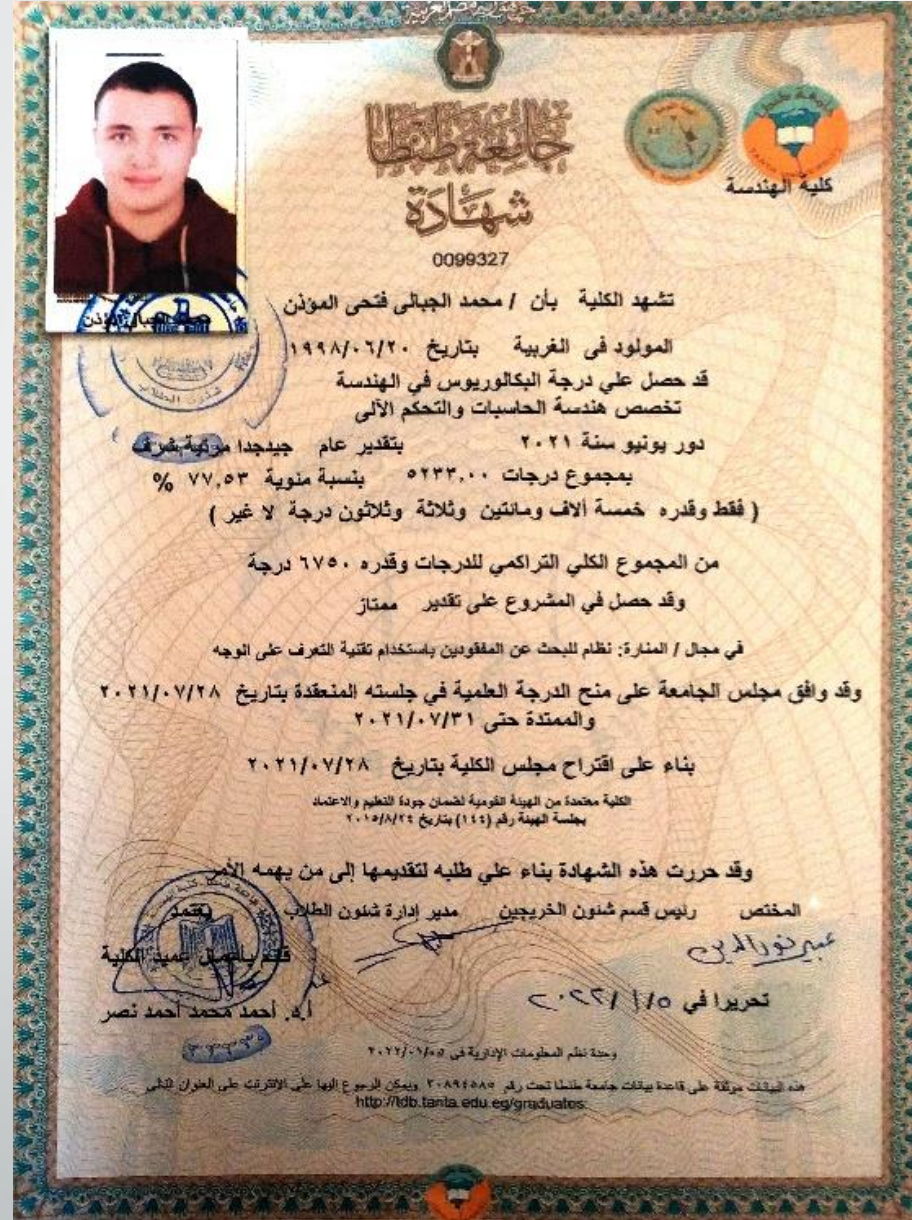 جمهورية مصر العربية
جامعة طنطا
كلية الهندسة
شهادة
0099327
تشهد الكلية بأن / محمد الجبالى فتحى المؤذن
المولود فى الغربية بتاريخ ١٩٩٨/٠٦/٢٠
قد حصل علي درجة البكالوريوس في الهندسة
تخصص هندسة الحاسبات والتحكم الآلى
دور يونيو سنة ٢٠٢١ بتقدير عام جيدجدا مرتبة شرف
بمجموع درجات ٥٢٣٣,٠٠ بنسبة منوية ٧٧,٥٣ %
( فقط وقدره خمسة ألاف ومانتين وثلاثة وثلاثون درجة لا غير )
من المجموع الكلي التراكمي للدرجات وقدره ٦٧٥٠ درجة
وقد حصل في المشروع على تقدير ممتاز
في مجال / المنارة: نظام للبحث عن المفقودين باستخدام تقنية التعرف على الوجه
وقد وافق مجلس الجامعة على منح الدرجة العلمية في جلسته المنعقدة بتاريخ ٢٠٢١/٠٧/٢٨
والممتدة حتى ٢٠٢١/٠٧/٣١
بناء على اقتراح مجلس الكلية بتاريخ ٢٠٢١/٠٧/٢٨
الكلية معتمدة من الهيئة القومية لضمان جودة التعليم والاعتماد
بجلسة الهيئة رقم (١٤٤) بتاريخ ٢٠١٥/٨/٢٤
وقد حررت هذه الشهادة بناء علي طلبه لتقديمها إلى من يهمه الأمر
المختص رئيس قسم شئون الخريجين مدير إدارة شئون الطلاب يعتمد
عبير نور الدين
قائم بأعمال عميد الكلية
تحريرا في ٥/ ١/ ٢٠٢٢
أ.د. أحمد محمد أحمد نصر
وحدة نظم المعلومات الإدارية فى ٢٠٢٢/٠١/٠٥
هذه البيانات موثقة على قاعدة بيانات جامعة طنطا تحت رقم ٢٠٨٩٤٥٨٥ ويمكن الرجوع إليها على الانترنت على العنوان التالى
http://tdb.tanta.edu.eg/graduates